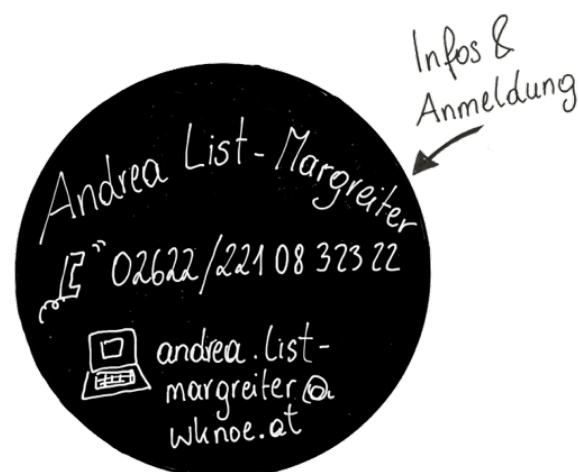 Infos &
Anmeldung
Andrea List-Margreiter
02622/221 08 323 22
andrea.list-
margreiter@
wknoe.at